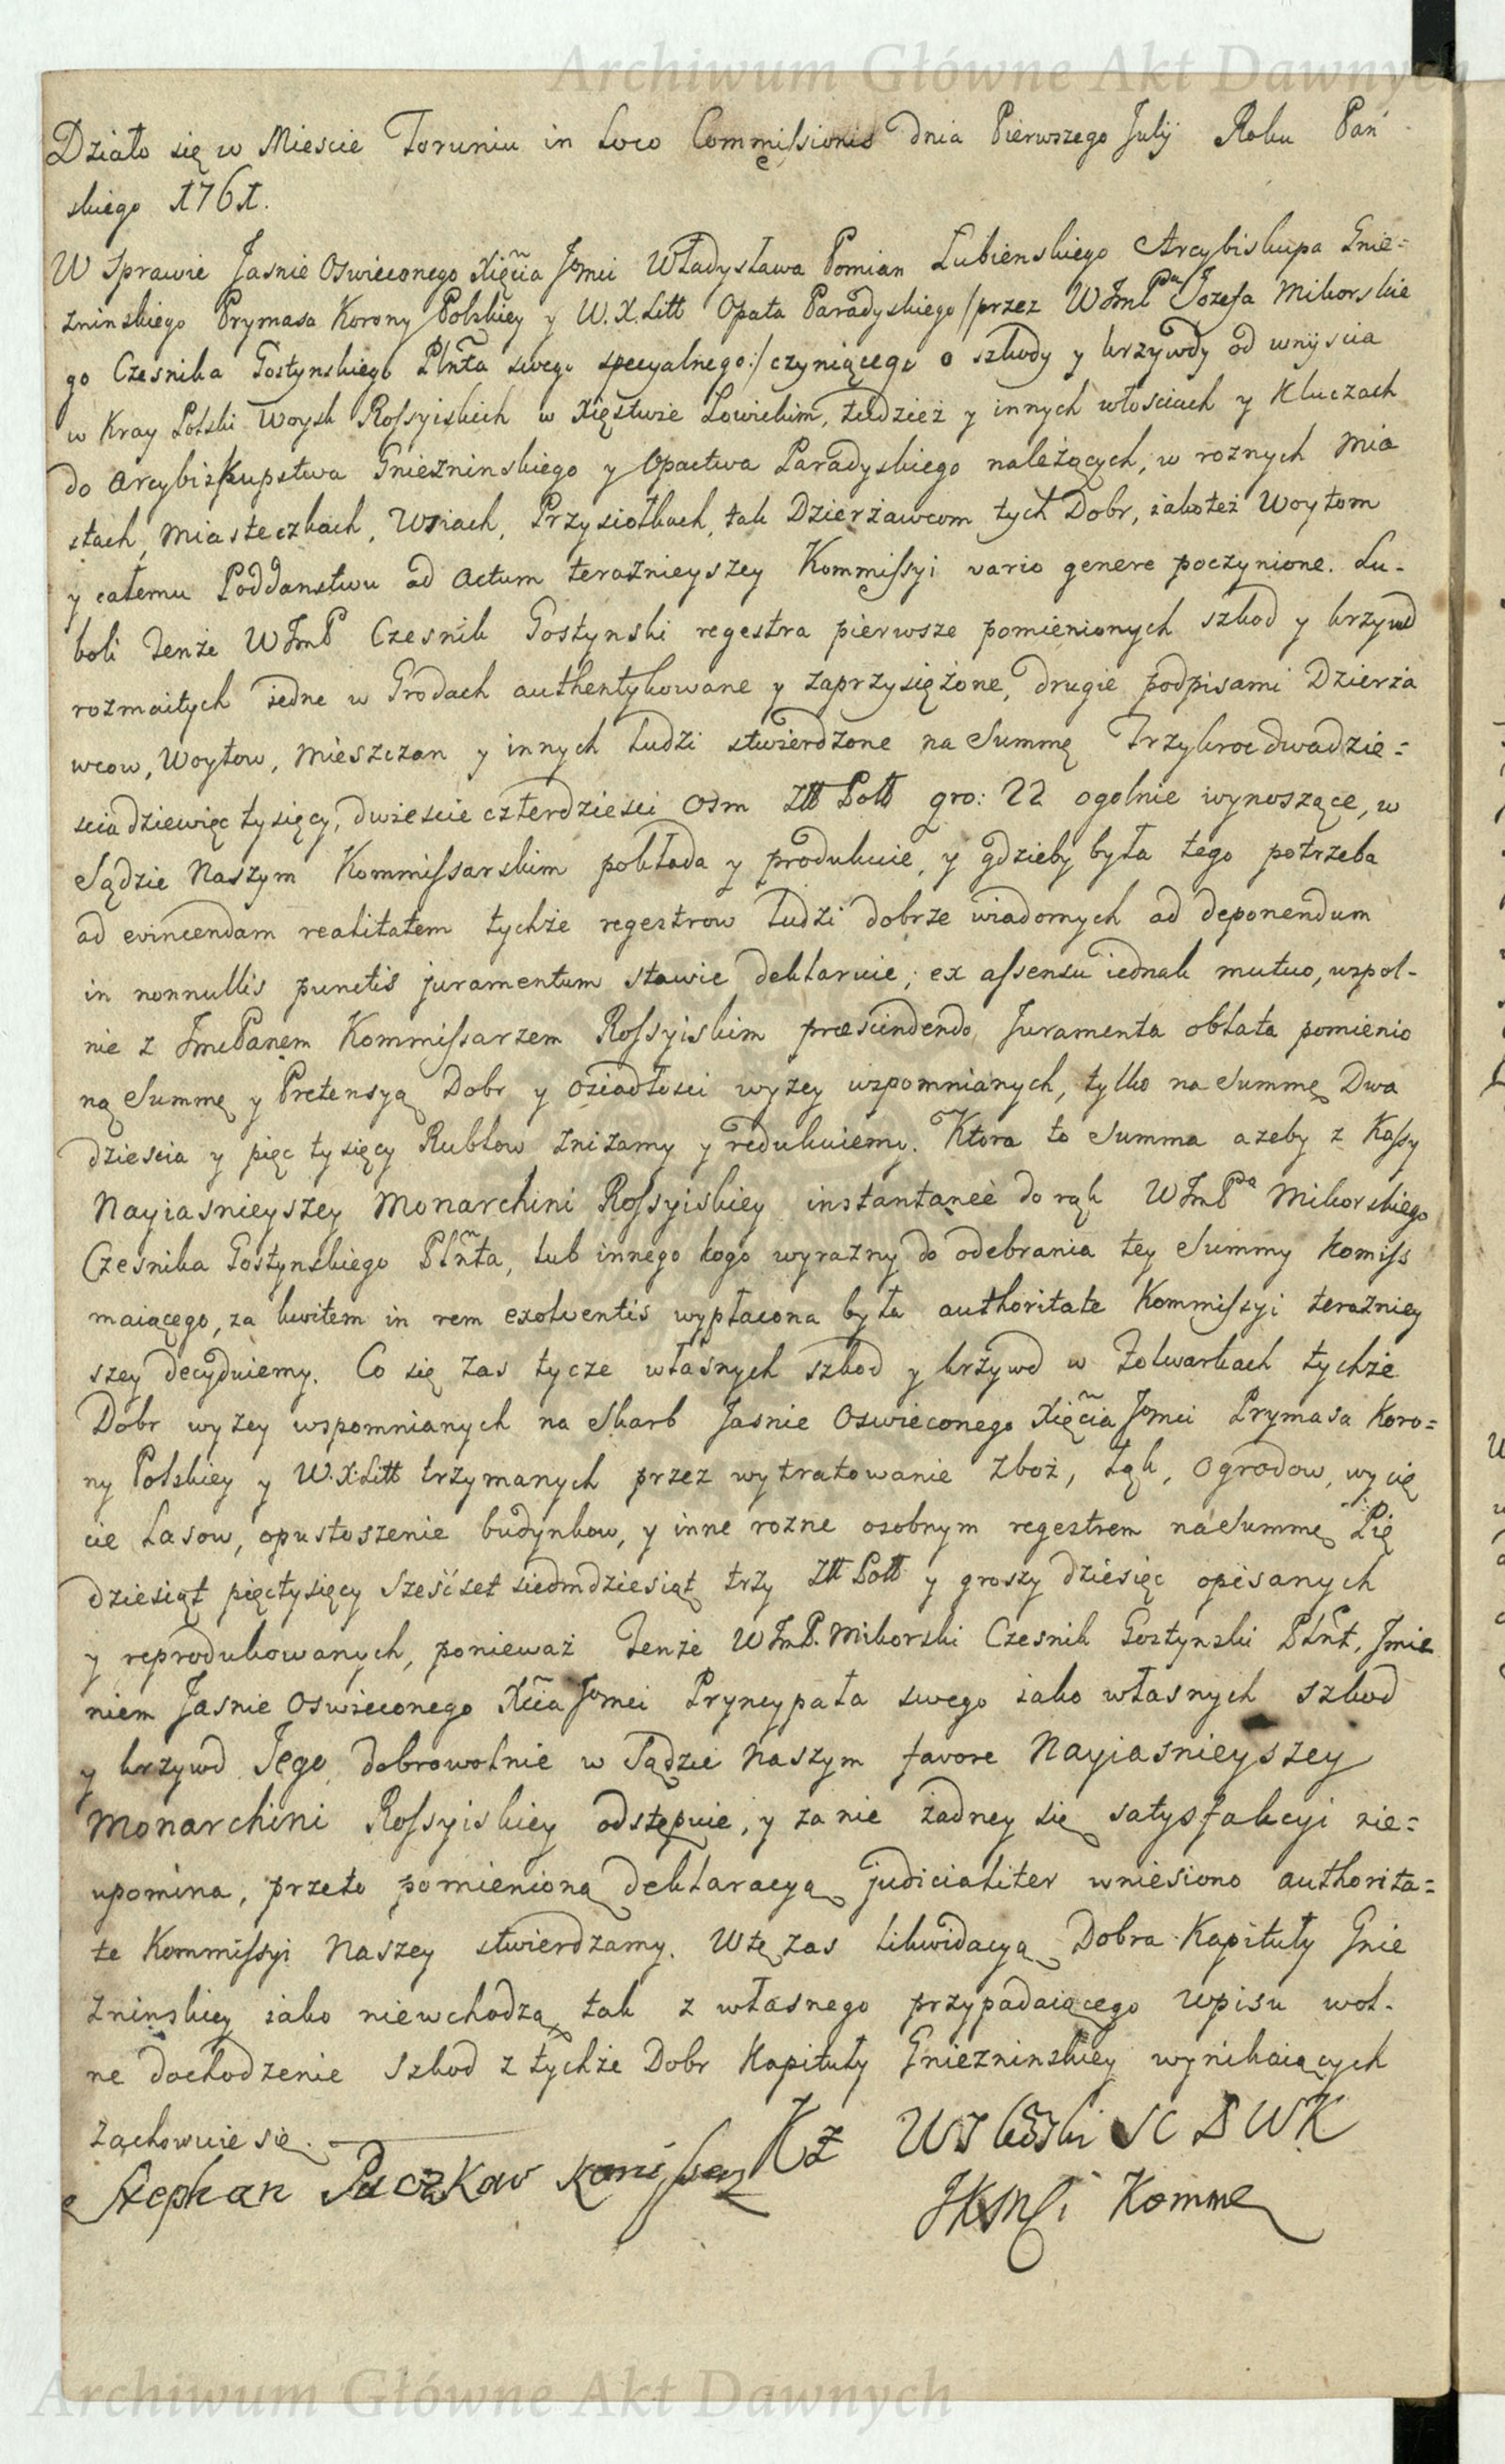 Archiwum Główne Akt Dawnych
Działo się w Mieście Toruniu in Loco Commissionis dnia Pierwszego Julÿ Roku Pań
skiego 1761.
W Sprawie Jasnie Oswieconego Xięcia Jomci Władysława Pomian Łubienskiego Arcybiskupa Gnie=
zninskiego Prymasa Korony Polskiey y W. X. Litt Opata Paradyskiego /:przez WJmPa Jozefa Mikorskie
go Czesnika Gostynskiego Plnta swego specyalnego:/ czyniącego o szkody y krzywdy od wnÿscia
w Kray Polski Woysk Rossyiskich w Xięstwie Łowickim, tudzież y innych włościach y Kluczach
do Arcybiskupstwa Gniezninskiego y Opactwa Paradyskiego należących, w roznych Mia
stach, Miasteczkach, Wsiach, Przysiołkach, tak Dzierżawcom tych Dobr, iakoteż Woytom
y całemu Poddanstwu ad Actum teraznieyszey Kommissyi vario genere poczynione. Lu-
boli Tenże WJmP Czesnik Gostynski regestra pierwsze pomienionych szkod y krzywd
rozmaitych iedne w Grodach authentykowane y zaprzysiężone, drugie podpisami Dzierża
wcow, Woytow, Mieszczan y innych Ludzi stwierdzone na Summę Trzykroc dwadzie=
scia dziewięc tysięcy, dwiescie czterdziesci Osm Złł Poll gro: 22 ogolnie wynoszące, w
Sądzie Naszym Kommissarskim pokłada y produkuie, y gdzieby była tego potrzeba
ad evincendam realitatem tychże regestrow Ludzi dobrze wiadomych ad deponendum
in nonnullis punctis juramentum stawic deklaruie; ex assensu iednak mutuo, wspol-
nie z JmcPanem Kommissarzem Rossyiskim præscindendo Juramenta oblata pomienio
ną Summę y Pretensyą Dobr y Osiadłosci wyzey wspomnianych, tylko na Summę Dwa
dziescia y pięc tysięcy Rublow zniżamy y redukuiemy. Ktora to Summa azeby z Kassy
Nayiasnieyszey Monarchini Rossyiskiey instantaneè do rąk WJmPa Mikorskiego
Czesnika Gostynskiego Plnta, lub innego kogo wyrazny do odebrania tey Summy komiss
maiącego, za kwitem in rem exolventis wypłacona była authoritate Kommissyi terazniey
szey decyduiemy. Co się zas tycze własnych szkod y krzywd w Folwarkach tychże
Dobr wyzey wspomnianych na Skarb Jasnie Oswieconego Xięcia Jomci Prymasa Koro=
ny Polskiey y W. X. Litt trzymanych przez wytratowanie zboż, Łąk, Ogrodow, wycię
cie Lasow, opustoszenie budynkow, y inne rozne osobnym regestrem na Summę Pię
dziesiąt pięctysięcy Sześćset siedmdziesiąt trzy Złł Poll y groszy dziesięc opisanych
y reprodukowanych, ponieważ Tenże WJmP. Mikorski Czesnik Gostynski Plnt, Jmie
niem Jasnie Oswieconego Xcia Jomci Pryncypała swego iako własnych szkod
y krzywd Jego dobrowolnie w Sądzie Naszym favore Nayiasnieyszey
Monarchini Rossyiskiey odstępuie, y za nie żadney się satysfakcyi nie=
upomina, przeto pomienioną deklaracyą judicialiter wniesiono authorita=
te Kommissyi Naszey stwierdzamy. Wtę zas likwidacyą Dobra Kapituły Gnie
zninskiey iako niewchodzą, tak z własnego przypadaiącego Wpisu wol-
ne dochodzenie Szkod z tychże Dobr Kapituły Gniezninskiey wynikaiących
zachowuie się.
Stephan Puczkow Komissarz KZ
JKMsci Komme
Archiwum Główne Akt Dawnych